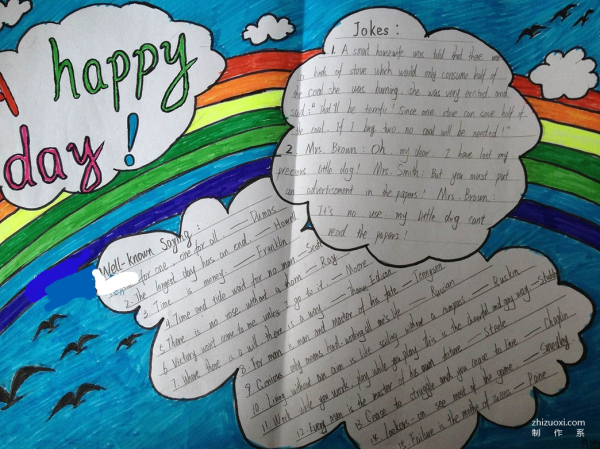 A happy
day!
Jokes:
1. A smart housewife was told that there was
a kind of stove which would only consume half of
the coal she was burning. She was very excited and
said: "That'll be terrific! Since one stove can save half of
the coal, if I buy two, no coal will be needed!"
2. Mrs. Brown: Oh, my dear, I have lost my
precious little dog! Mrs. Smith: But you must put
an advertisement in the papers! Mrs. Brown:
It's no use, my little dog can't
read the papers!
Well-known Saying:
for one, one for all. — Dumas
2. The longest day has an end. — Howell
3. Time is money. — Franklin
4. Time and tide wait for no man — Scott
5. There is no rose without a thorn — Ray
6. Victory won't come to me unless I go to it. — Moore
7. Where there is a will, there is a way — Thomas Edison
8. For man is man and master of his fate — Tennyson
9. Genius only means hard-working all one's life — Russian
10. Living without an aim is like sailing without a compass — Ruskin
11. Work while you work, play while you play, this is the cheerful and gay way —
12. Every man is the master of his own fortune — Steele
13. Cease to struggle and you cease to live —
14. Lookers-on see most of the game — Smedley
15. Failure is the mother of success — Paine
zhizuoxi.com
制 作 系